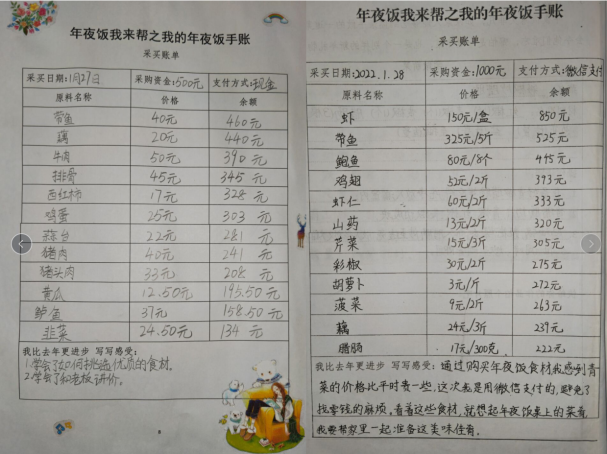 年夜饭我来帮之我的年夜饭手账
采买账单
采买日期:1月27日 采购资金:500元 支付方式:现金
原料名称 价格 余额
带鱼 40元 460元
藕 20元 440元
牛肉 50元 390元
排骨 45元 345元
西红柿 17元 328元
鸡蛋 25元 303元
蒜台 22元 281元
猪肉 40元 241元
猪头肉 33元 208元
黄瓜 12.50元 195.50元
鲈鱼 37元 158.50元
韭菜 24.50元 134元
我比去年更进步 写写感受:
1.学会了如何挑选优质的食材。
2.学会了和老板讲价。
年夜饭我来帮之我的年夜饭手账
采买账单
采买日期:2022.1.28 采购资金:1000元 支付方式:微信支付
原料名称 价格 余额
虾 150元/盒 850元
带鱼 325元/5斤 525元
鲍鱼 80元/8个 445元
鸡翅 52元/2斤 393元
虾仁 60元/2斤 333元
山药 13元/2斤 320元
芹菜 15元/3斤 305元
彩椒 30元/2斤 275元
胡萝卜 3元/斤 272元
菠菜 9元/2斤 263元
藕 24元/3斤 239元
腊肠 17元/300克 222元
我比去年更进步 写写感受:通过购买年夜饭食材我感到青
菜的价格比平时贵一些,这次我是用微信支付的,避免了
找零钱的麻烦。看着这些食材,就想起年夜饭桌上的菜肴,
我要帮家里一起准备这美味佳肴。